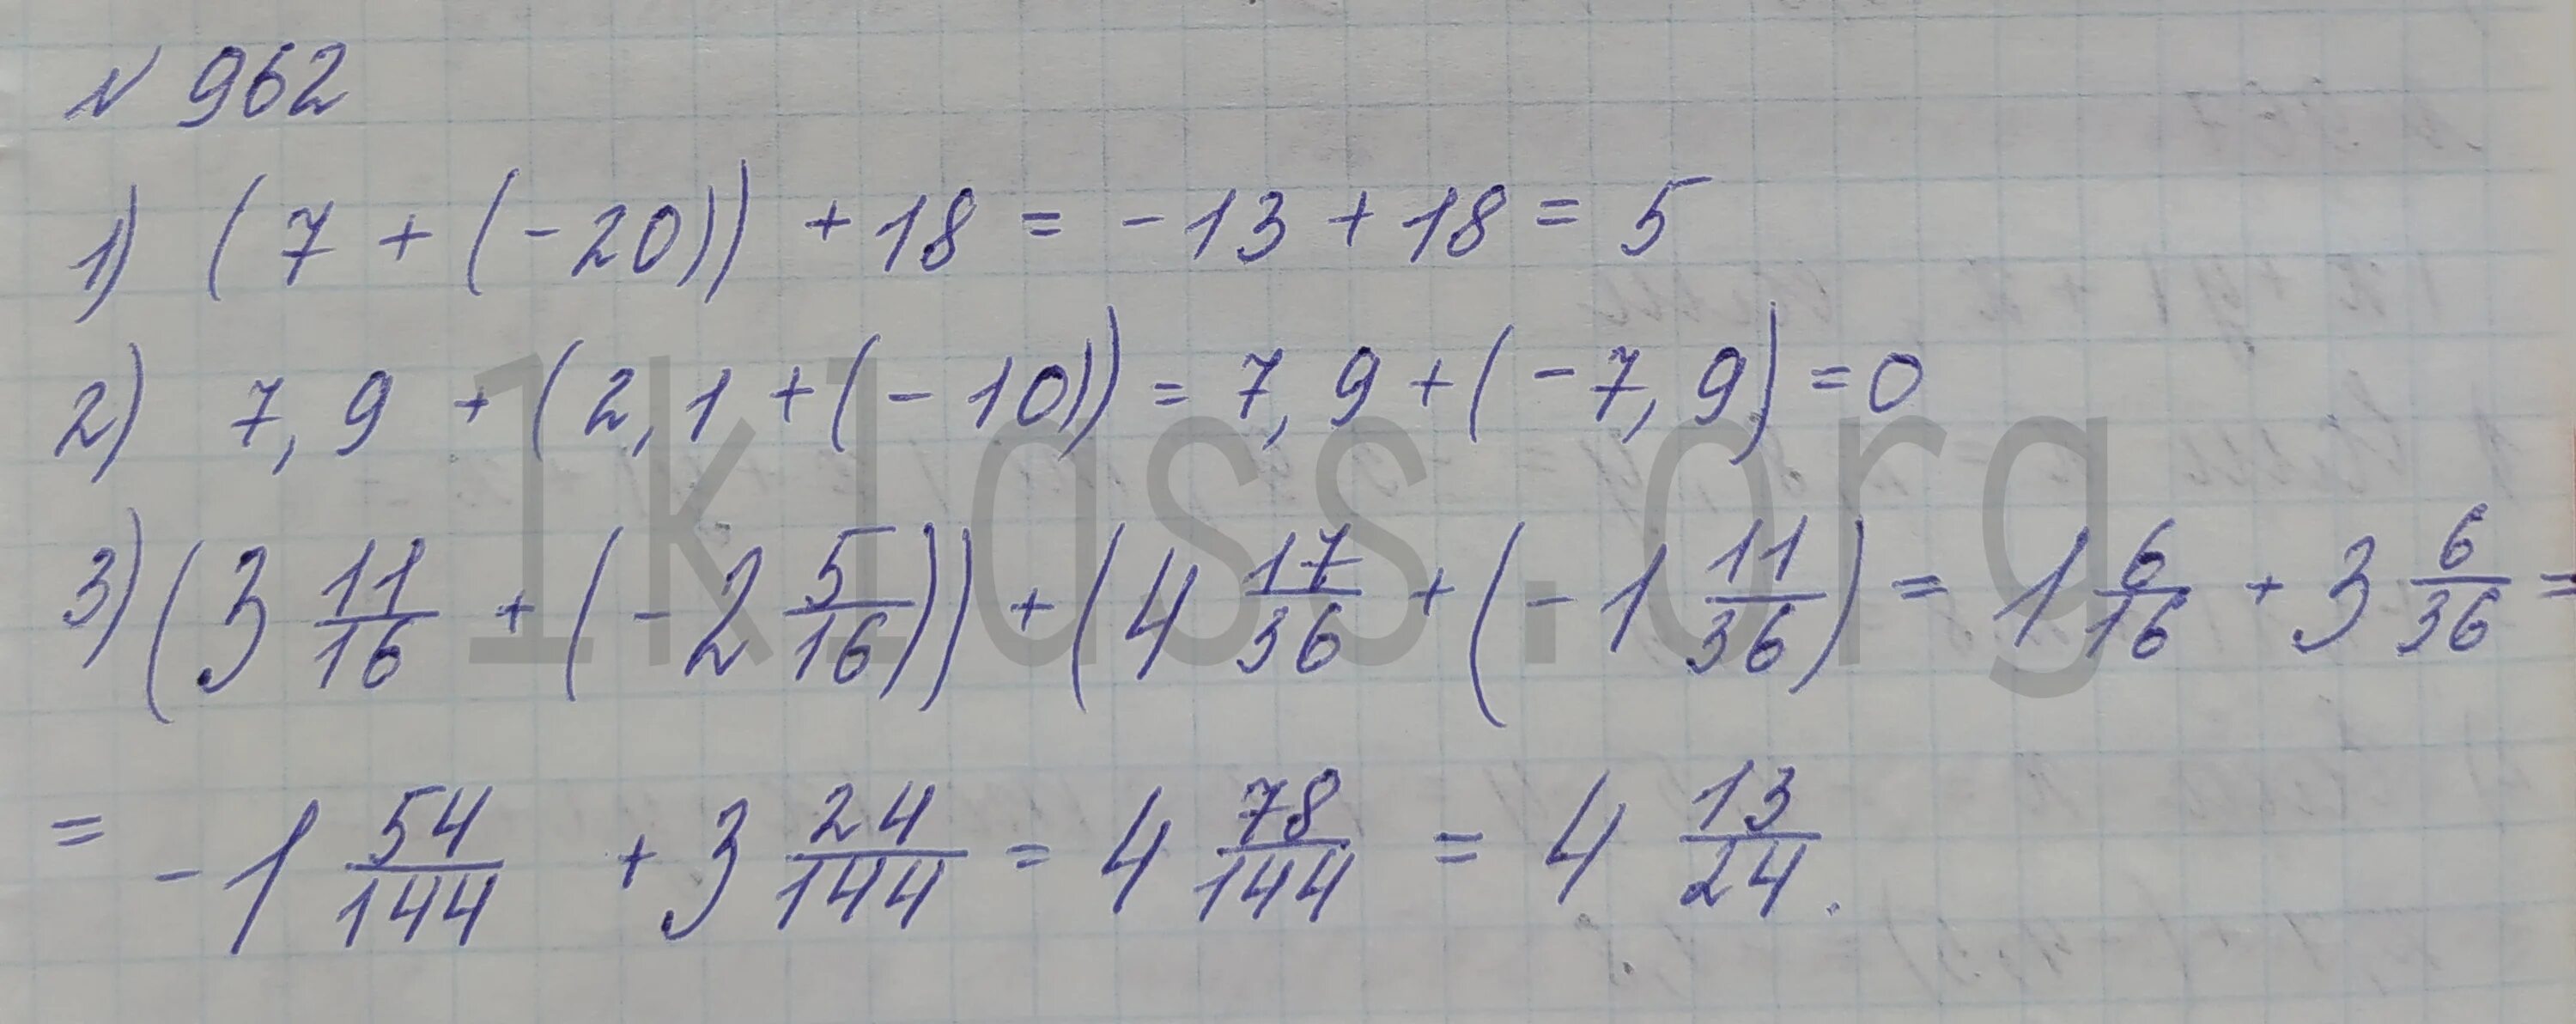 № 962
1) (7 + (-20)) + 18 = -13 + 18 = 5
2) 7,9 + (2,1 + (-10)) = 7,9 + (-7,9) = 0
3) (3 11/16 + (-2 5/16)) + (4 17/36 + (-1 11/36) = 1 6/16 + 3 6/36 =
= -1 54/144 + 3 24/144 = 4 78/144 = 4 13/24.
1klass.org